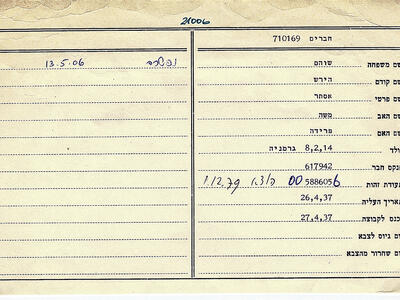 21006
חברים 710169
שם משפחה שוהם
שם קודם הירש
שם פרטי אסתר
שם האב משה
שם האם פרידה
ולד 8,2,14 גרמניה
פנקס חבר 617942
תעודת זהות 00 5886056 הוצא 1.12.79
תאריך העליה 26,4,37
נכנס לקבוצה 27.4,37
יום גיוס לצבא
יום שחרור מהצבא
נפטרה 13.5.06